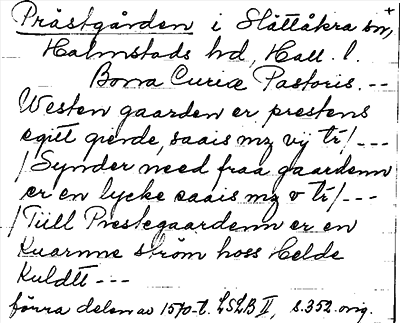 Prästgården i Slättåkra sn,
Halmstads hd, Hall. l.
Bona Curiæ Pastoris. --
Westen gaarden er prestens
egitt giende, saais mz vij tr/ ---
/ Synder need fraa gaardenn
er en lycke saais mz v tr/ ---
/ Tiill Prestegaardenn er en
Kuarnne ström hoss Helde
Kuldtt ---
förra delen av 1570-t. LSLB II, s. 352. orig.